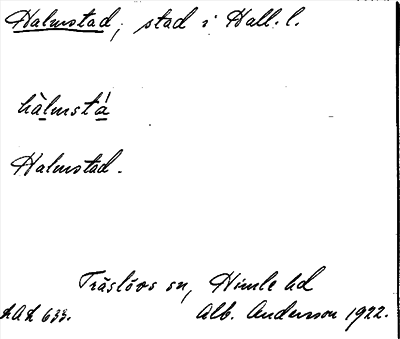 Halmstad, stad i Hall. l.
hàlmstá
Halmstad.
Träslövs sn, Himle hd
LAL 633. Alb. Andersson 1922.